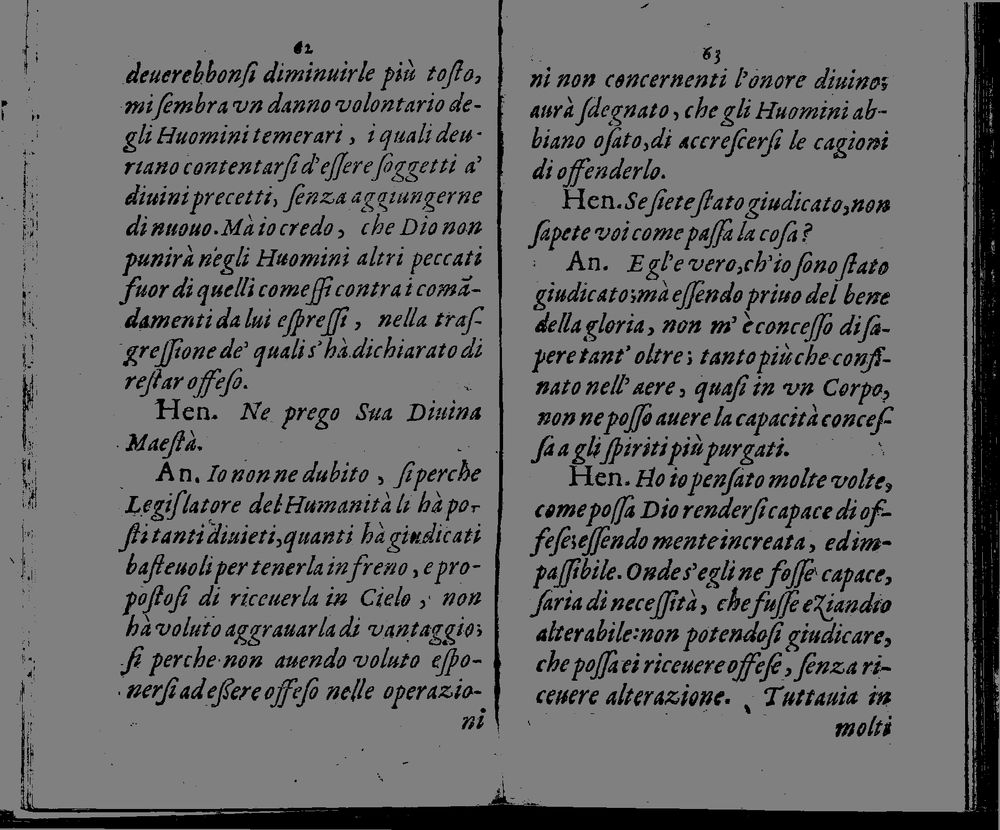 62
deuerebbonſi diminuirle più toſto,
mi ſembra vn danno volontario de-
gli Huomini temerari, i quali deu-
riano contentarſi d'eſſere ſoggetti a'
diuini precetti, ſenza aggiungerne
di nuouo. Mà io credo, che Dio non
punirà negli Huomini altri peccati
fuor di quelli comeſſi contra i comã-
damenti da lui eſpreſſi, nella traſ-
greſſione de' quali s'hà dichiarato di
reſtar offeſo.
Hen. Ne prego Sua Diuina
Maeſtà.
An. Io non ne dubito, ſi perche
Legiſlatore del Humanità li hà po-
ſti tanti diuieti, quanti hà giudicati
baſteuoli per tenerla in freno, e pro-
poſtoſi di riceuerla in Cielo, non
hà voluto aggrauarla di vantaggio;
ſi perche non auendo voluto eſpo-
nerſi ad eßere offeſo nelle operazio-
ni
63
ni non concernenti l'onore diuino;
aurà ſdegnato, che gli Huomini ab-
biano oſato, di accreſcerſi le cagioni
di offenderlo.
Hen. Se ſiete ſtato giudicato, non
ſapete voi come paſſa la coſa?
An. Egl'e vero, ch'io ſono ſtato
giudicato; mà eſſendo priuo del bene
della gloria, non m'è conceſſo di ſa-
pere tant' oltre; tanto più che confi-
nato nell' aere, quaſi in vn Corpo,
non ne poſſo auere la capacità conceſ-
ſa a gli ſpiriti più purgati.
Hen. Ho io penſato molte volte,
come poſſa Dio renderſi capace di of-
feſe; eſſendo mente increata, ed im-
paſſibile. Onde s'egli ne foſſe capace,
ſaria di neceſſità, che fuſſe eziandio
alterabile: non potendoſi giudicare,
che poſſa ei riceuere offeſe, ſenza ri-
ceuere alterazione. Tuttauia in
molti